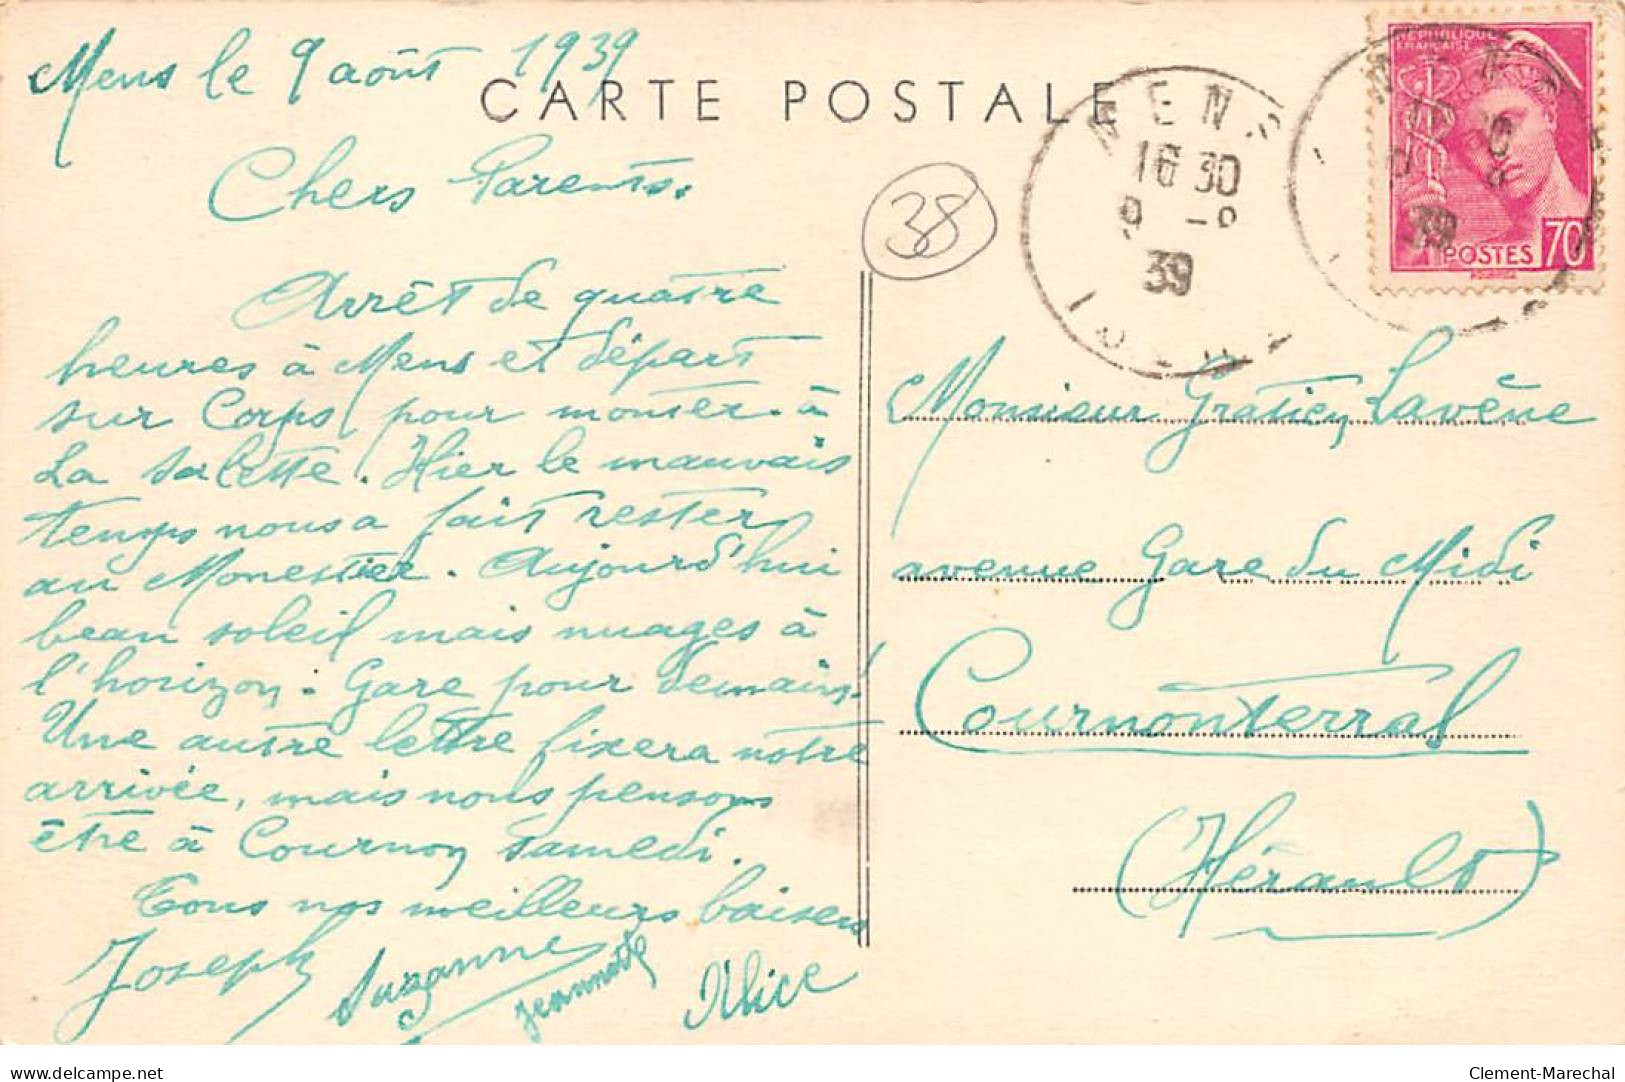 Mens le 9 août 1939
CARTE POSTALE
Chers Parents.
Arrêt de quatre
heures à Mens et départ
sur Corps, pour monter à
La Salette. Hier le mauvais
temps nous a fait rester
au Monestier. Aujourd'hui
beau soleil mais nuages à
l'horizon. Gare pour demain!
Une autre lettre fixera notre
arrivée, mais nous pensons
être à Cournon samedi.
Tous nos meilleurs baisers
Joseph Suzanne Jeannette Alice
38
MENS
16 30
9 -8
39
ISERE
REPUBLIQUE
FRANCAISE
POSTES 70
39
Monsieur Gratien Lavène
avenue Gare du Midi
Cournonterral
(Hérault)
delcampe.net
Clement-Marechal